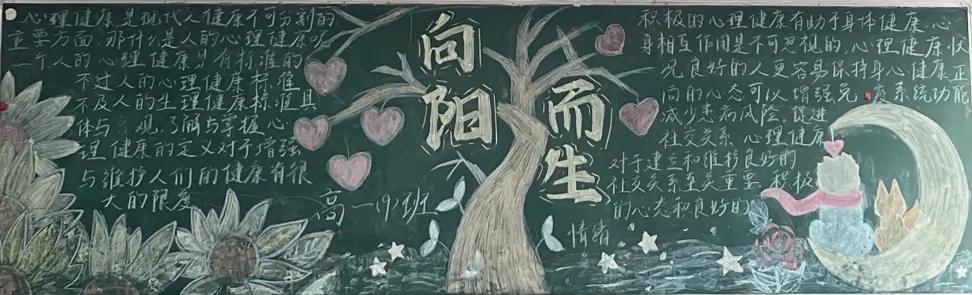 心理健康是现代人健康不可分割的
重要方面，那什么是人的心理健康呢
一个人的心理健康是有标准的
不过人的心理健康标准
不及人的生理健康标准具
体与客观，了解与掌握心
理健康的定义对于增强
与维护人们的健康有很
大的限度
向阳
而生
高一(9)班
积极的心理健康有助于身体健康，心
身相互作用是不可忽视的，心理健康状
况良好的人更容易保持身心健康，正
向的心态可以增强免疫系统功能
减少患病风险，促进
社交关系，心理健康
对于建立和维持良好的
社交关系至关重要，积极
的心态和良好的
情绪